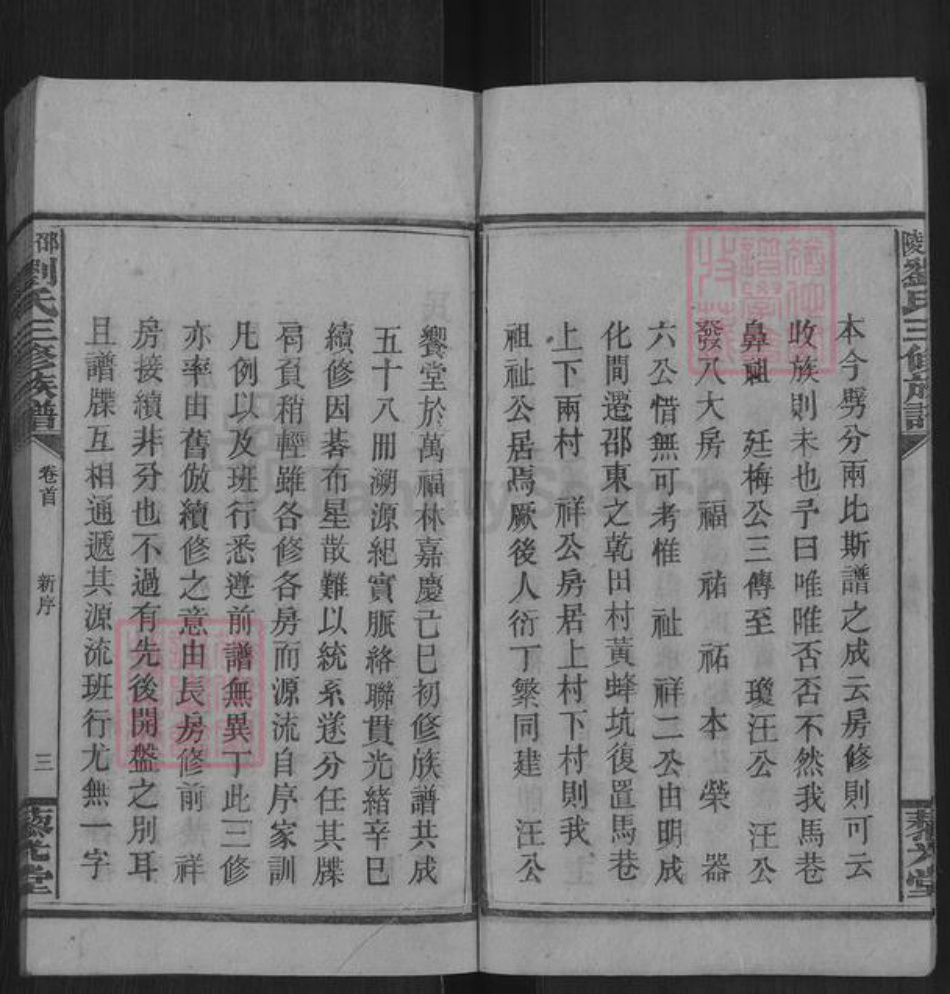 陵劉氏三修族譜
藜光堂
本今劈分兩比斯譜之成云房修則可云
收族則未也予曰唯唯否否不然我馬巷
鼻祖 廷梅公三傳至 瓊汪公 汪公
發八大房 福 祐 祏 本 榮 器
六公惜無可考惟 祉 祥二公由明成
化間遷邵東之乾田村黃蜂坑復置馬巷
上下兩村 祥公房居上村下村則我
祖祉公居焉厥後人衍丁繁同建 汪公
饗堂於萬福林嘉慶己巳初修族譜共成
五十八冊溯源紀實脈絡聯貫光緒辛巳
續修因碁布星散難以統系遂分任其牒
咼負稍輕雖各修各房而源流自序家訓
凡例以及班行悉遵前譜無異丁此三修
亦率由舊倣續修之意由長房修前 祥
房接續非分也不過有先後開盤之別耳
且譜牒互相通遞其源流班行尤無一字
邵劉氏三修族譜
卷首
新序
三
藜光堂